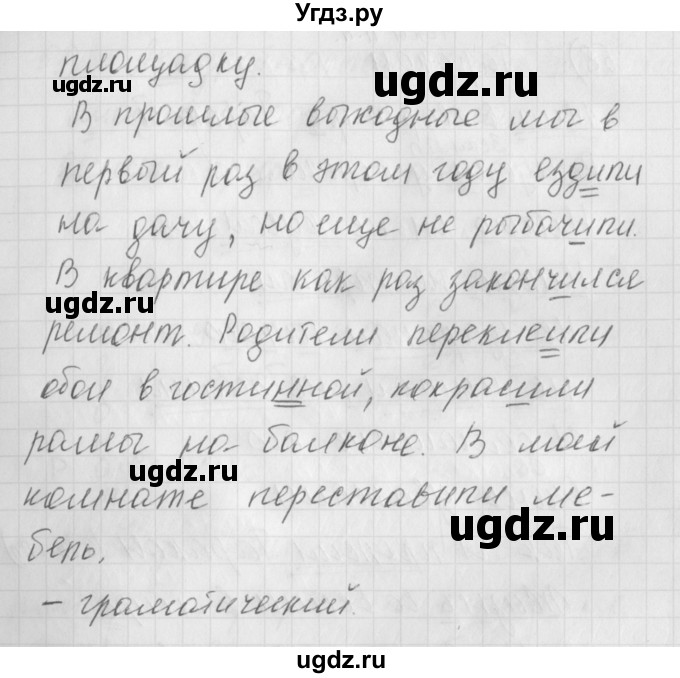 Угдз.ру
площадку.
ugdz.ru
ugdz.ru
В прошлые выходные мы в
первый раз в этом году ездили
на дачу, но еще не рыбачили.
В квартире как раз закончился
ugdz.ru
ugdz.ru
ремонт. Родители переклеили
обои в гостинной, покрасили
рамы на балконе. В моей
ugdz.ru
комнате переставили ме-
ugdz.ru
бель.
- граматический.
ugdz.ru